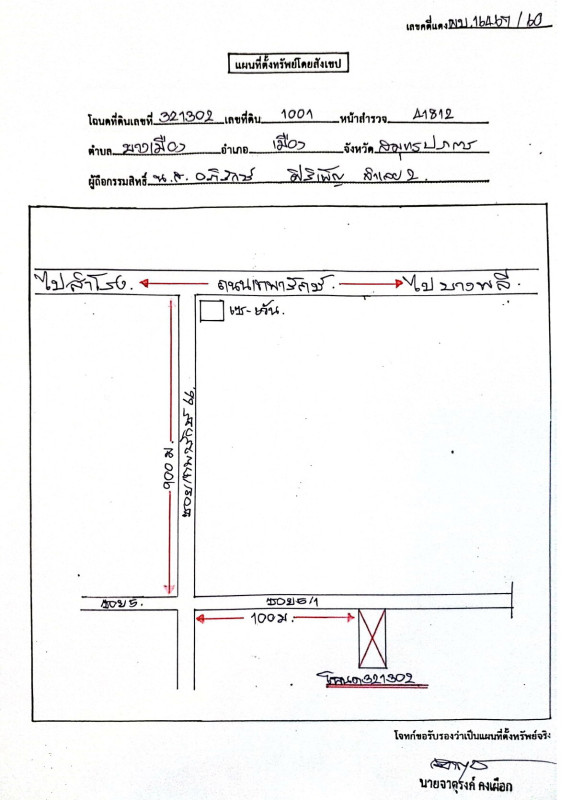 เลขคดีแดง ผบ.16467/60
แผนที่ตั้งทรัพย์โดยสังเขป
โฉนดที่ดินเลขที่ 321302 เลขที่ดิน 1001 หน้าสำรวจ 41812
ตำบล บางเมือง อำเภอ เมือง จังหวัด สมุทรปราการ
ผู้ถือกรรมสิทธิ์ น.ส. อภิรักษ์ ศิริเพ็ญ
ไปสำโรง. ถนนเทพารักษ์ ไปบางพลี.
เซ-เว่น.
900 ม.
ซอยเทพารักษ์ 66.
ซอย 5. ซอย 5/1
100 ม.
โฉนด 321302
โจทก์ขอรับรองว่าเป็นแผนที่ตั้งทรัพย์จริง
นายจาตุรงค์ คงเผือก